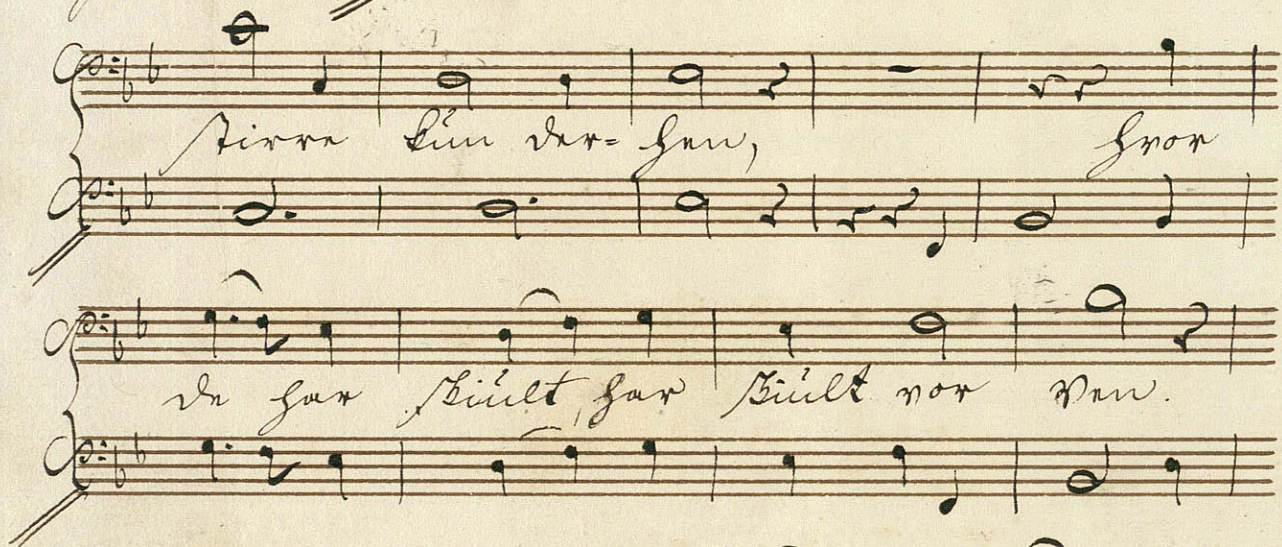 stirre kun der= hen, hvor
de har skiult, har skiult vor Ven.